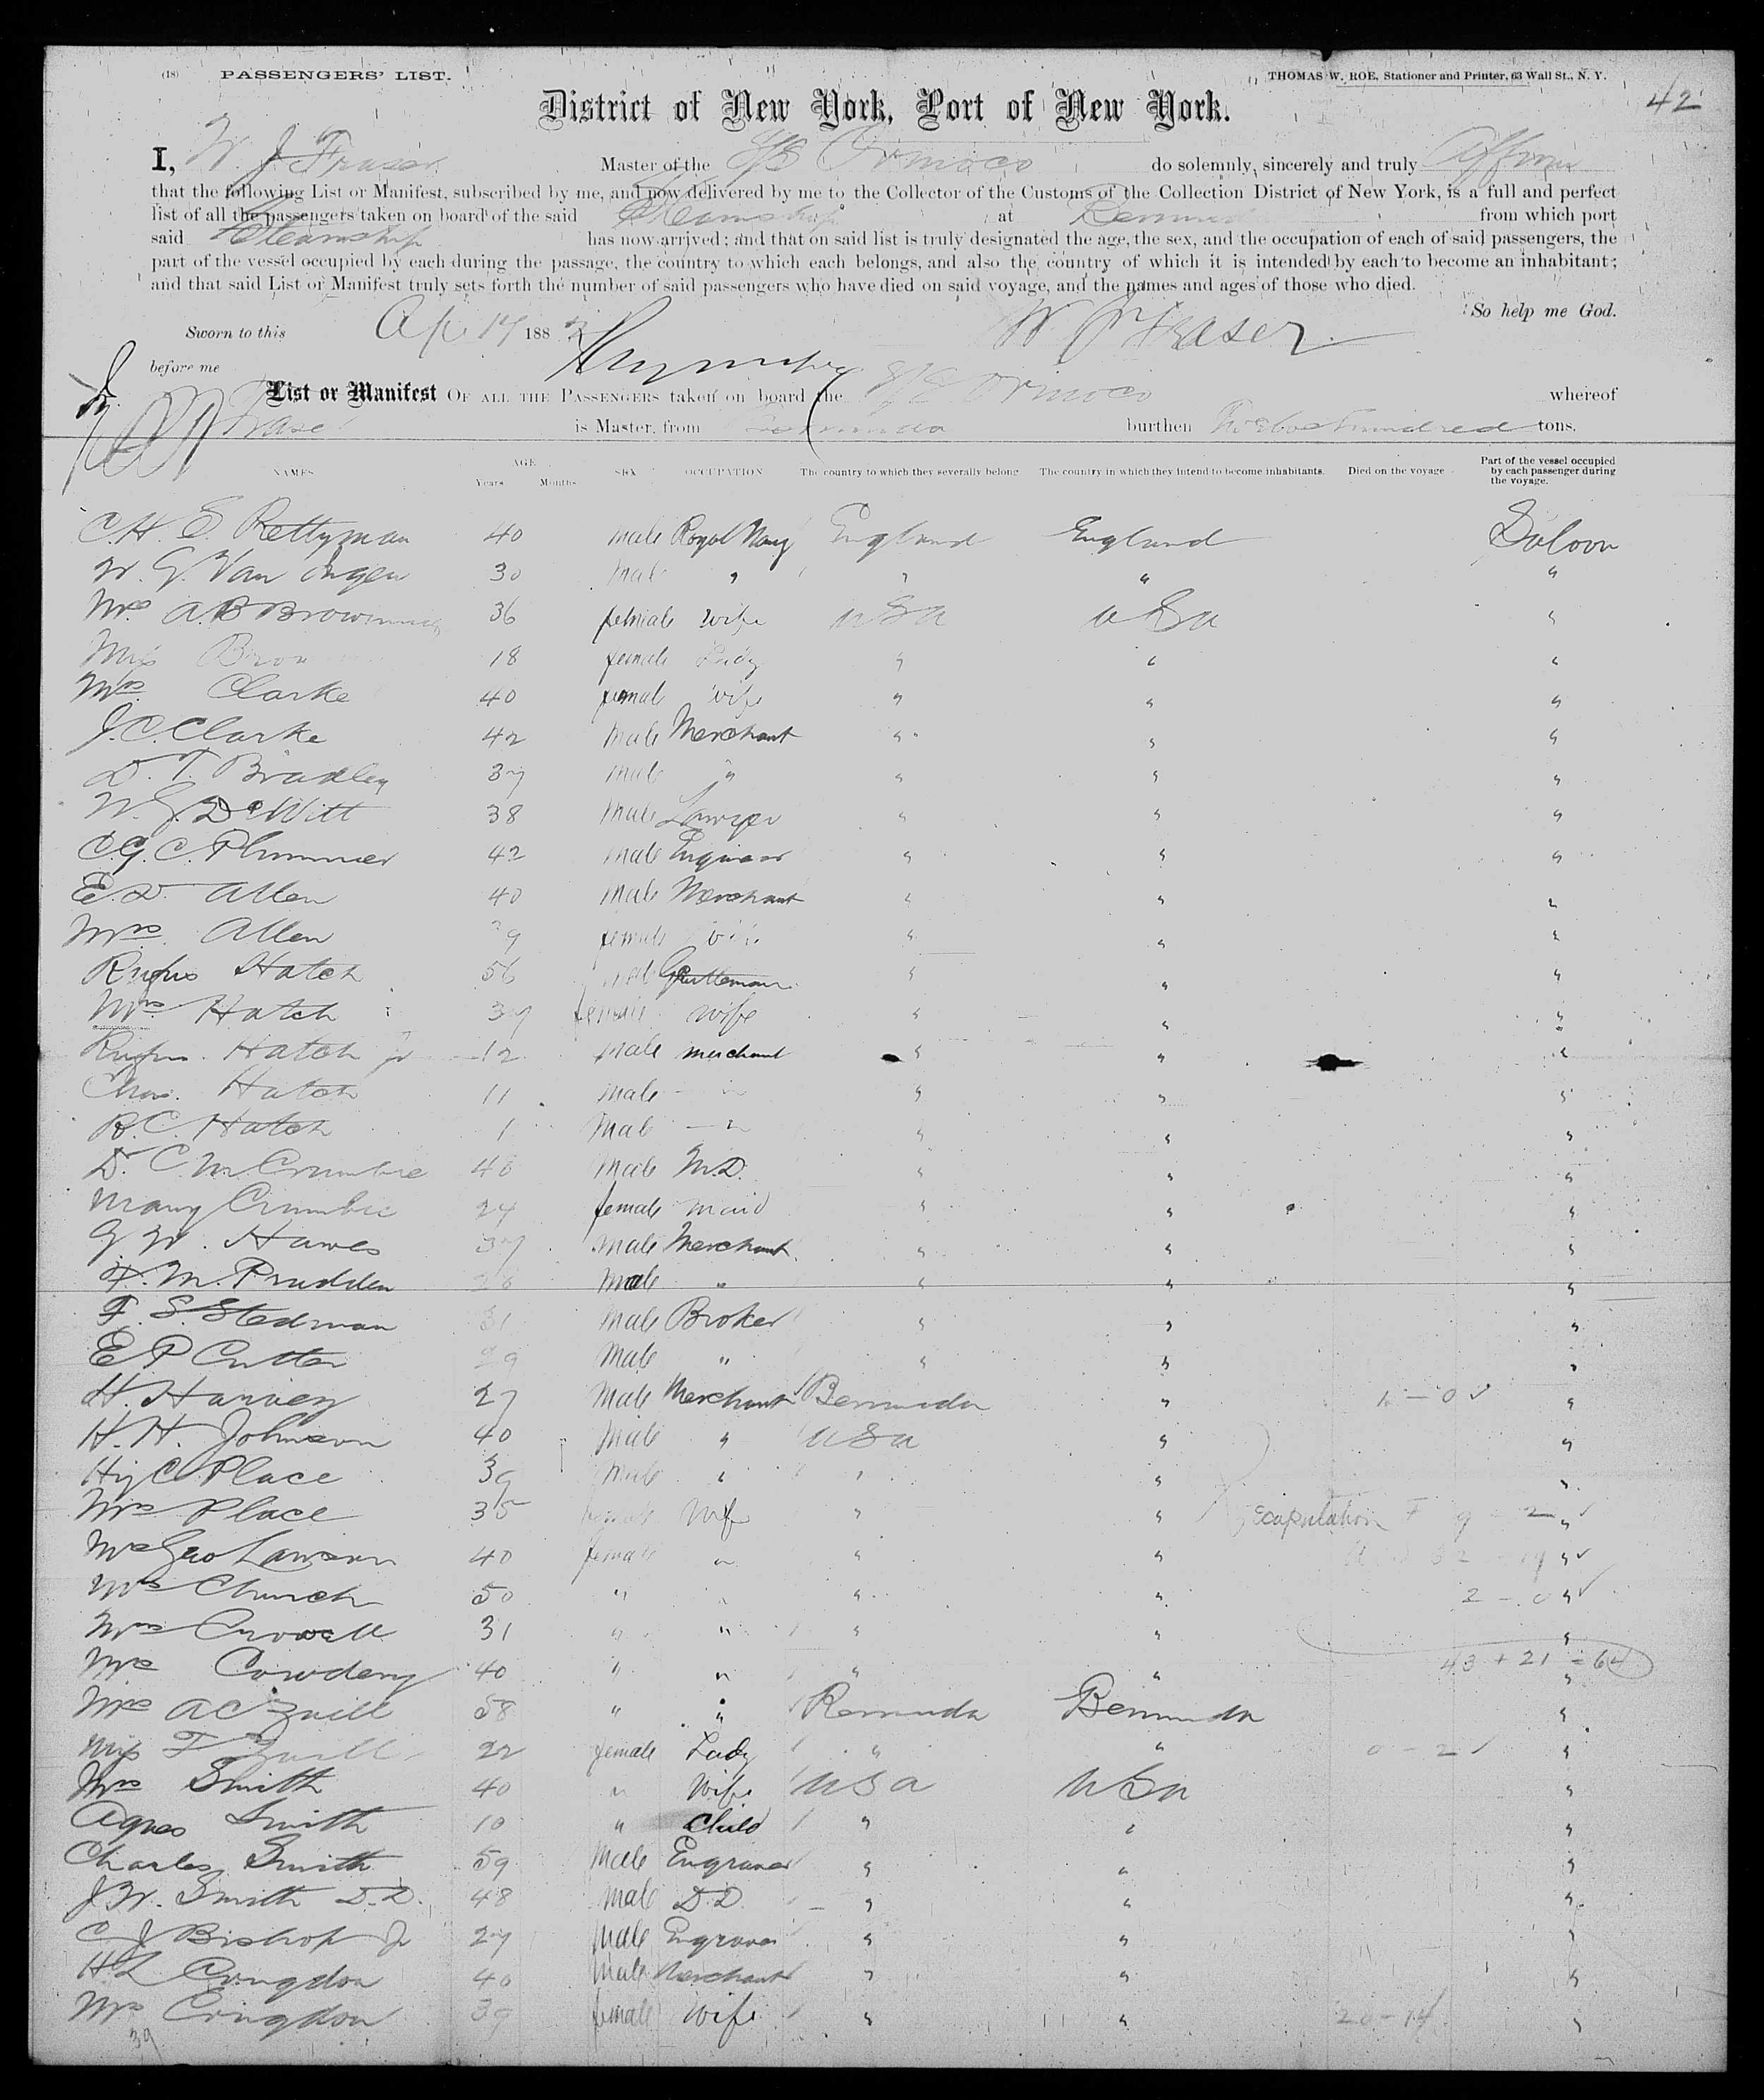 (18) PASSENGERS' LIST. THOMAS W. ROE, Stationer and Printer, 63 Wall St., N. Y.
42
District of New York, Port of New York.
I, W. J. Fraser Master of the S/S Orinoco do solemnly, sincerely and truly affirm
that the following List or Manifest, subscribed by me, and now delivered by me to the Collector of the Customs of the Collection District of New York, is a full and perfect
list of all the passengers taken on board of the said Steamship at Bermuda from which port
said Steamship has now arrived; and that on said list is truly designated the age, the sex, and the occupation of each of said passengers, the
part of the vessel occupied by each during the passage, the country to which each belongs, and also the country of which it is intended by each to become an inhabitant;
and that said List or Manifest truly sets forth the number of said passengers who have died on said voyage, and the names and ages of those who died.
So help me God.
Sworn to this Ap 17 188 W J Fraser
before me
List or Manifest OF ALL THE PASSENGERS taken on board the S/S Orinoco whereof
W J Fraser is Master, from Bermuda burthen Twelve Hundred tons.
NAMES AGE Years Months SEX OCCUPATION The country to which they severally belong The country in which they intend to become inhabitants. Died on the voyage Part of the vessel occupied by each passenger during the voyage.
C. H. E. Prettyman 40 Male Royal Navy England England Saloon
W. G. Van Ingen 30 Male " " " "
Mrs A. B Browning 36 female wife USA USA "
Miss Brow 18 female Lady " " "
Mrs Clarke 40 female wife " " "
J. C. Clarke 42 Male Merchant " " "
D. T. Bradley 37 Male " " " "
W. G. DeWitt 38 Male Lawyer " " "
C. G. C. Plummer 42 Male Engineer " " "
E. D. Allen 40 Male Merchant " " "
Mrs Allen 39 female wife " " "
Rufus Hatch 56 Male Gentleman " " "
Mrs Hatch 37 female wife " " "
Rufus Hatch Jr 12 Male merchant " " "
Chas. Hatch 11 Male " " " "
R. C. Hatch 1 Male " " " "
D. C. M. Crumbie 40 Male M.D. " " "
Mary Crumbie 24 female maid " " "
G. W. Hawes 37 Male Merchant " " "
T. M. Prudden 26 Male " " " "
F. S. Stedman 31 Male Broker " " "
E P Cutter 29 Male " " " "
H. Harvey 27 Male Merchant Bermuda " 1 - 0 ✓ "
H. H. Johnson 40 Male " USA " "
Hy C. Place 39 Male " " " "
Mrs Place 35 female Wife " " Recapitulation F 9 - 2 ✓ "
Mrs Geo Lawson 40 female " " " 32 - 19 ✓ "
Mrs Church 50 " " " " 2 - 0 ✓ "
Mrs Crowell 31 " " " " "
Mrs Cowdery 40 " " " " 43 + 21 = 64 "
Mrs A C Zuill 58 " " Bermuda Bermuda "
Miss F Zuill 22 female Lady " " 0 - 2 ✓ "
Mrs Smith 40 " Wife USA USA "
Agnes Smith 10 " Child " " "
Charles Smith 59 Male Engraver " " "
J. W. Smith D.D. 48 Male D.D. " " "
C J Bishop Jr 27 Male Engraver " " "
H L Congdon 40 Male Merchant " " "
Mrs Congdon 39 female wife " " 20 - 14 "
39